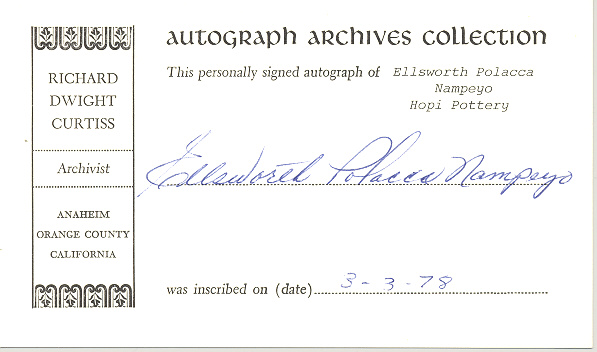 AUTOGRAPH ARCHIVES COLLECTION
This personally signed autograph of Ellsworth Polacca
Nampeyo
Hopi Pottery
RICHARD
DWIGHT
CURTISS
Archivist
ANAHEIM
ORANGE COUNTY
CALIFORNIA
Ellsworth Polacca Nampeyo
was inscribed on (date) 3-3-78